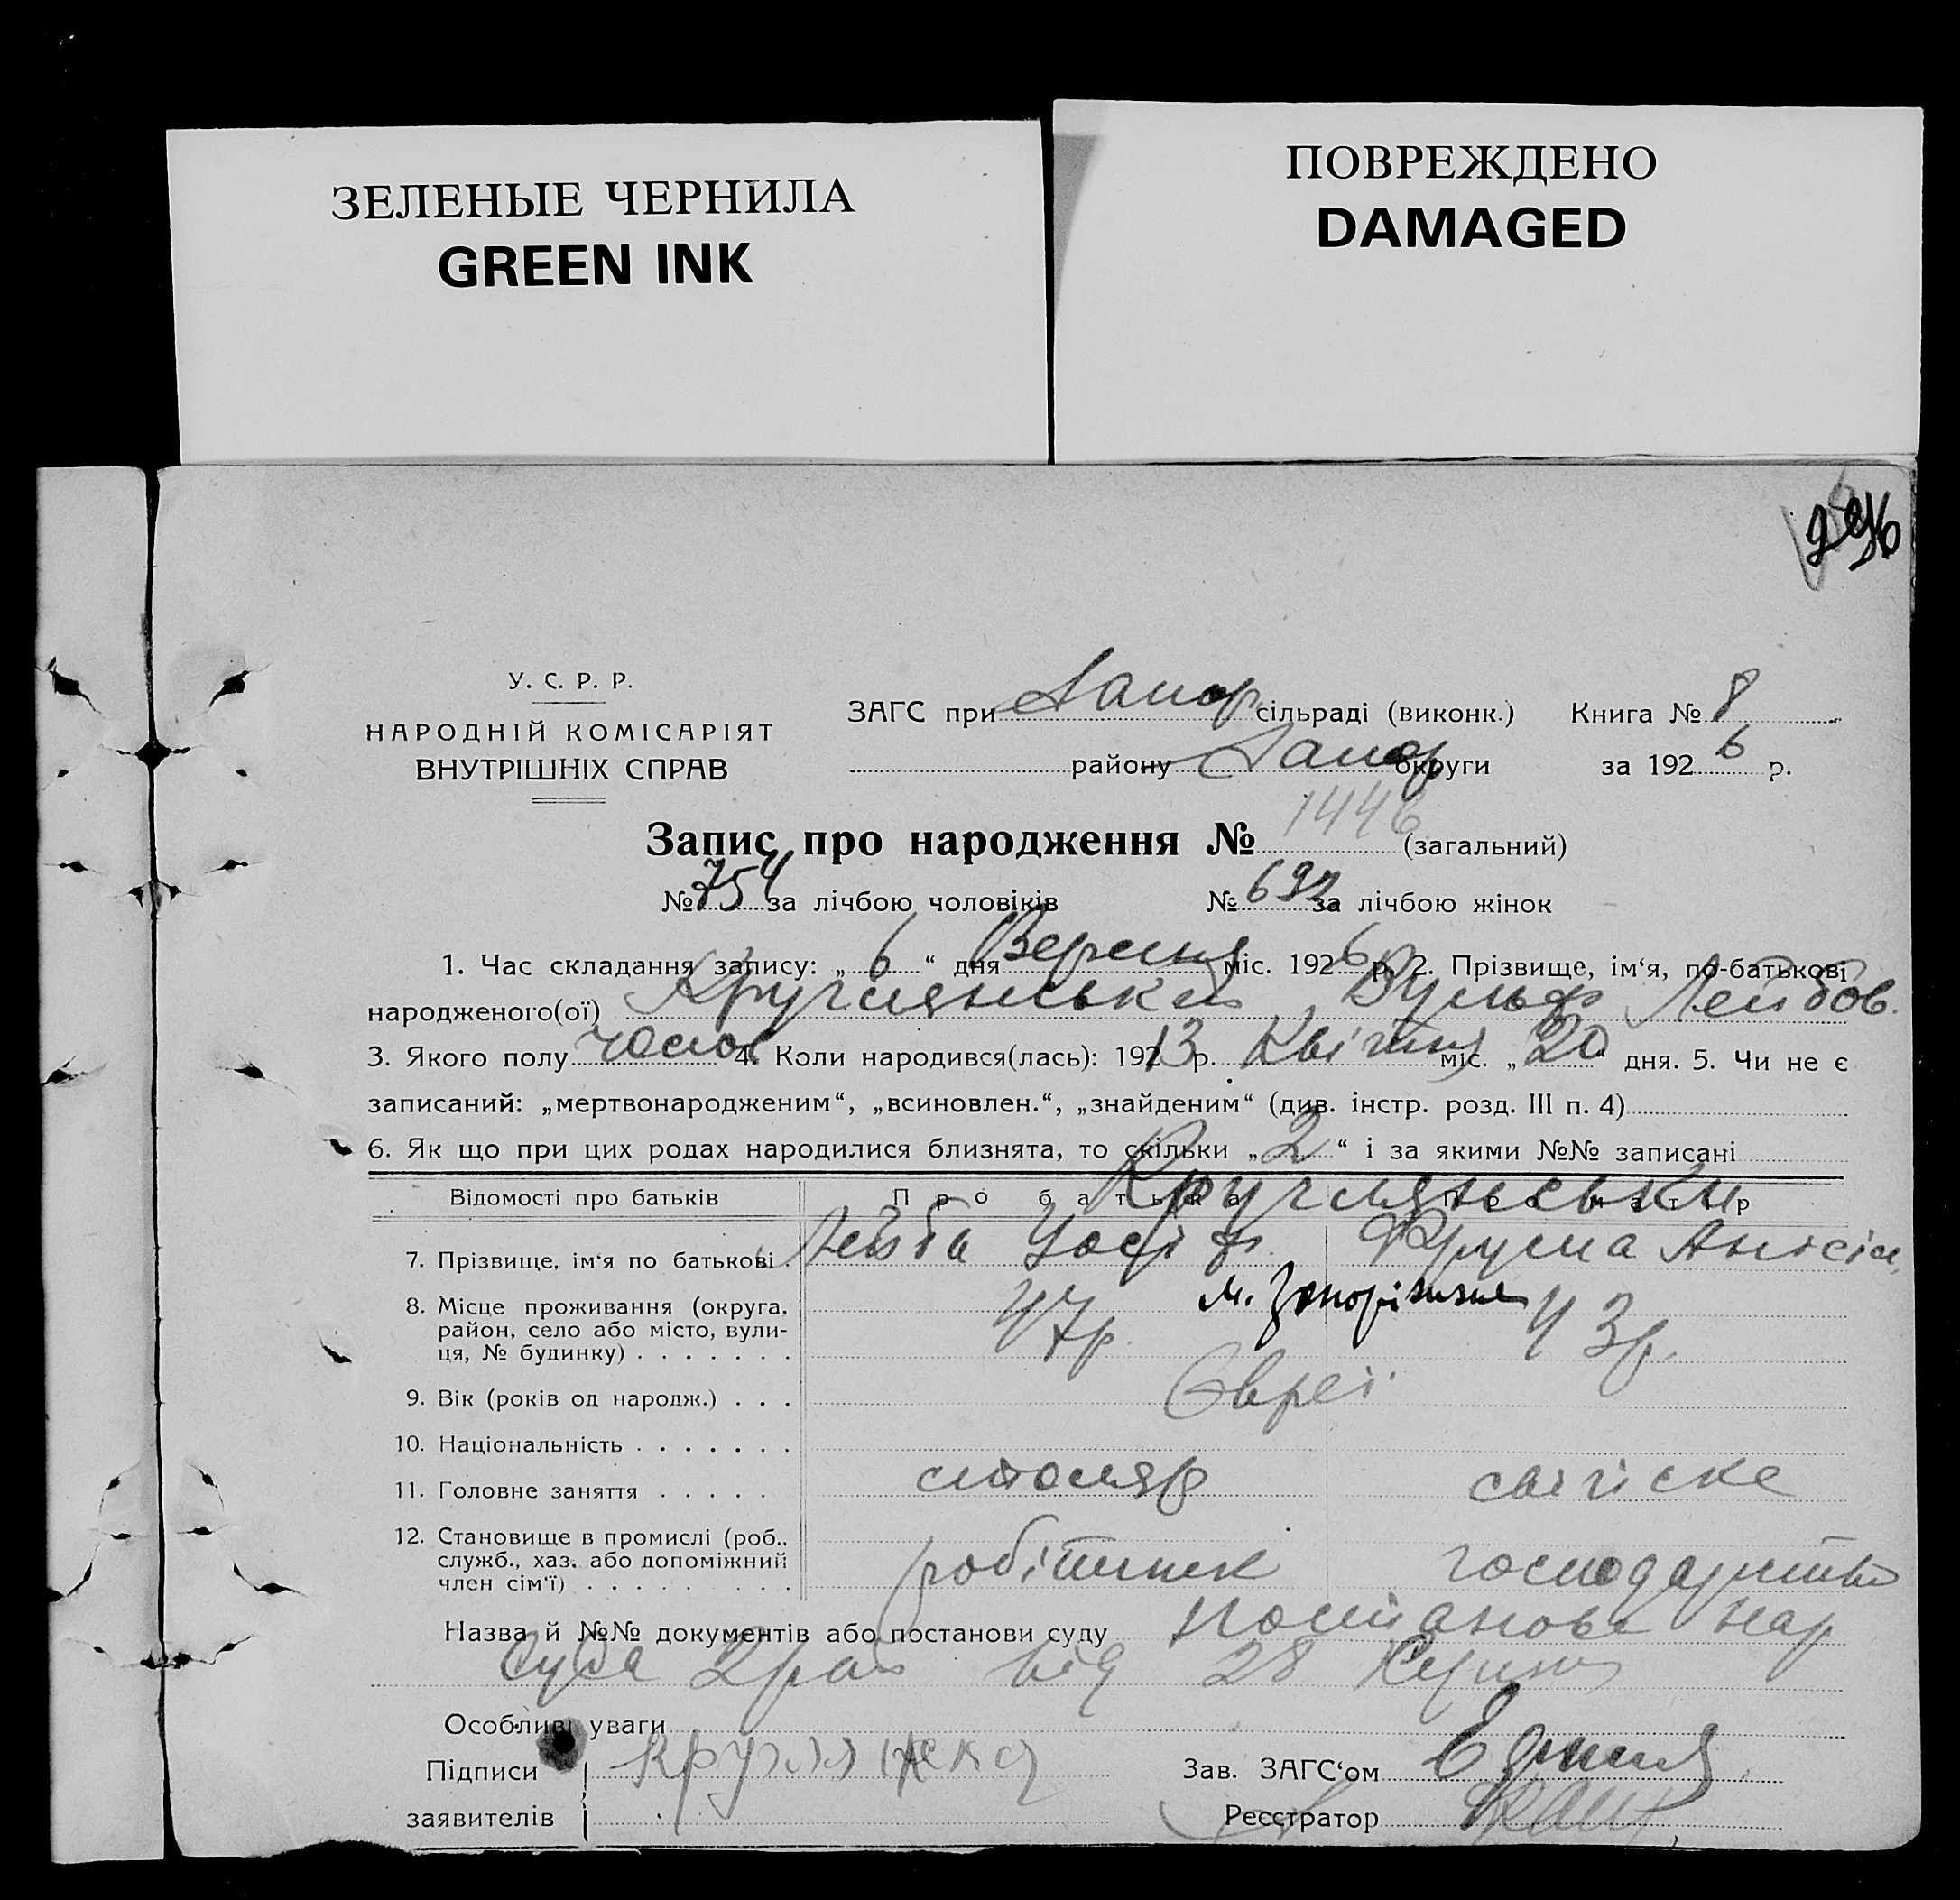 ЗЕЛЕНЫЕ ЧЕРНИЛА
GREEN INK
ПОВРЕЖДЕНО
DAMAGED
У. С. Р. Р.
НАРОДНІЙ КОМІСАРІЯТ
ВНУТРІШНІХ СПРАВ
ЗАГС при Запор сільраді (виконк.) Книга № 8
району Запор округи за 1926 р.
Запис про народження № 1446 (загальний)
№ 754 за лічбою чоловіків № 692 за лічбою жінок
1. Час складання запису: „6“ дня Вересня міс. 1926 р. 2. Прізвище, ім‘я, по-батькові
народженого(ої) Круглянський Вульф Лейбов.
3. Якого полу чолов 4. Коли народився(лась): 19213 р. Квітня міс. „20“ дня. 5. Чи не є
записаний: „мертвонародженим“, „всиновлен.“, „знайденим“ (див. інстр. розд. III п. 4)
6. Як що при цих родах народилися близнята, то скільки „2“ і за якими №№ записані
Відомості про батьків Про батька Про матір
Круглянськи
7. Прізвище, ім‘я по батькові Лейба Йосіф. Фрума Анісім.
8. Місце проживання (округа, район, село або місто, вулиця, № будинку) м. Запоріжжя
47р. 43р.
9. Вік (років од народж.)
Євреї
10. Національність
11. Головне заняття столяр хатіске
12. Становище в промислі (роб., служб., хаз. або допоміжний член сім‘ї) робітник господарство
Назва й №№ документів або постанови суду Постанова Нар
Суда 2 рай від 28 Серпня
Особливі уваги
Підписи
заявителів
Зав. ЗАГС‘ом
Реєстратор